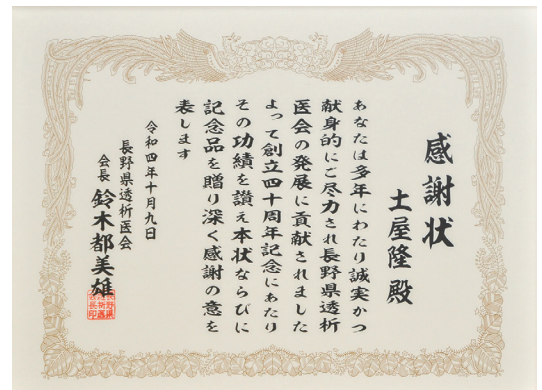 感謝状
土屋隆 殿
あなたは多年にわたり誠実かつ
献身的にご尽力され長野県透析
医会の発展に貢献されました
よって創立四十周年記念にあたり
その功績を讃え本状ならびに
記念品を贈り深く感謝の意を
表します
令和四年十月九日
長野県透析医会
会長 鈴木都美雄